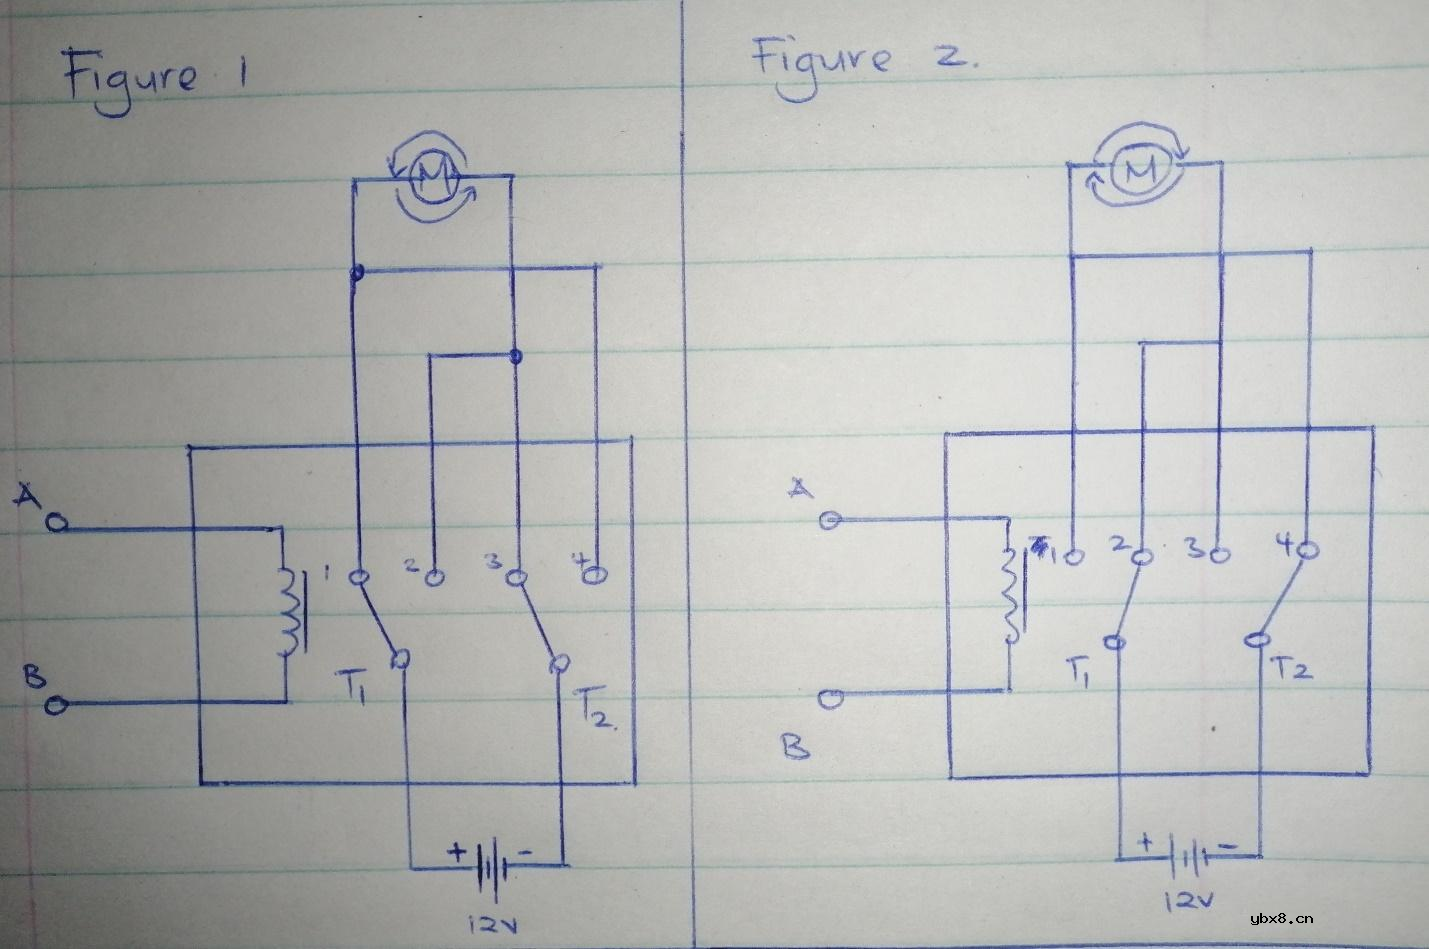 Figure 1
M
A
1 2 3 4
B
T1
T2.
+ -
12V
Figure 2.
M
A
1 2 3 4
T1
T2
B
+ -
12V
ybx8.cn